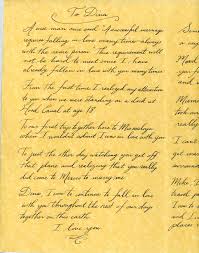 To Dina
A wise man once said A successful marriage
requires falling in love many times always
with the same person. This requirement will
not be hard to meet since I have
already fallen in love with you many times
From the first time I realized my attention
to you when we were standing on a dock at
Hood Canal at age 18
To our first trip together here to
when I wouldn't admit I was in love with you
To just the other day watching you get off
that plane and realizing that you really
did come to Mexico to marry me
Dina, I vow to continue to fall in love
with you throughout the rest of our days
together on this earth.
I love you.